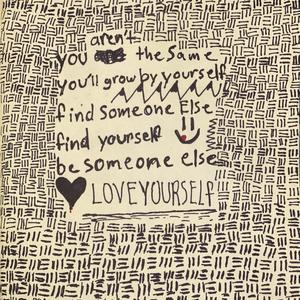 you aren't the same
you'll grow by yourself
find someone Else
find yourself
be someone else
LOVE YOURSELF